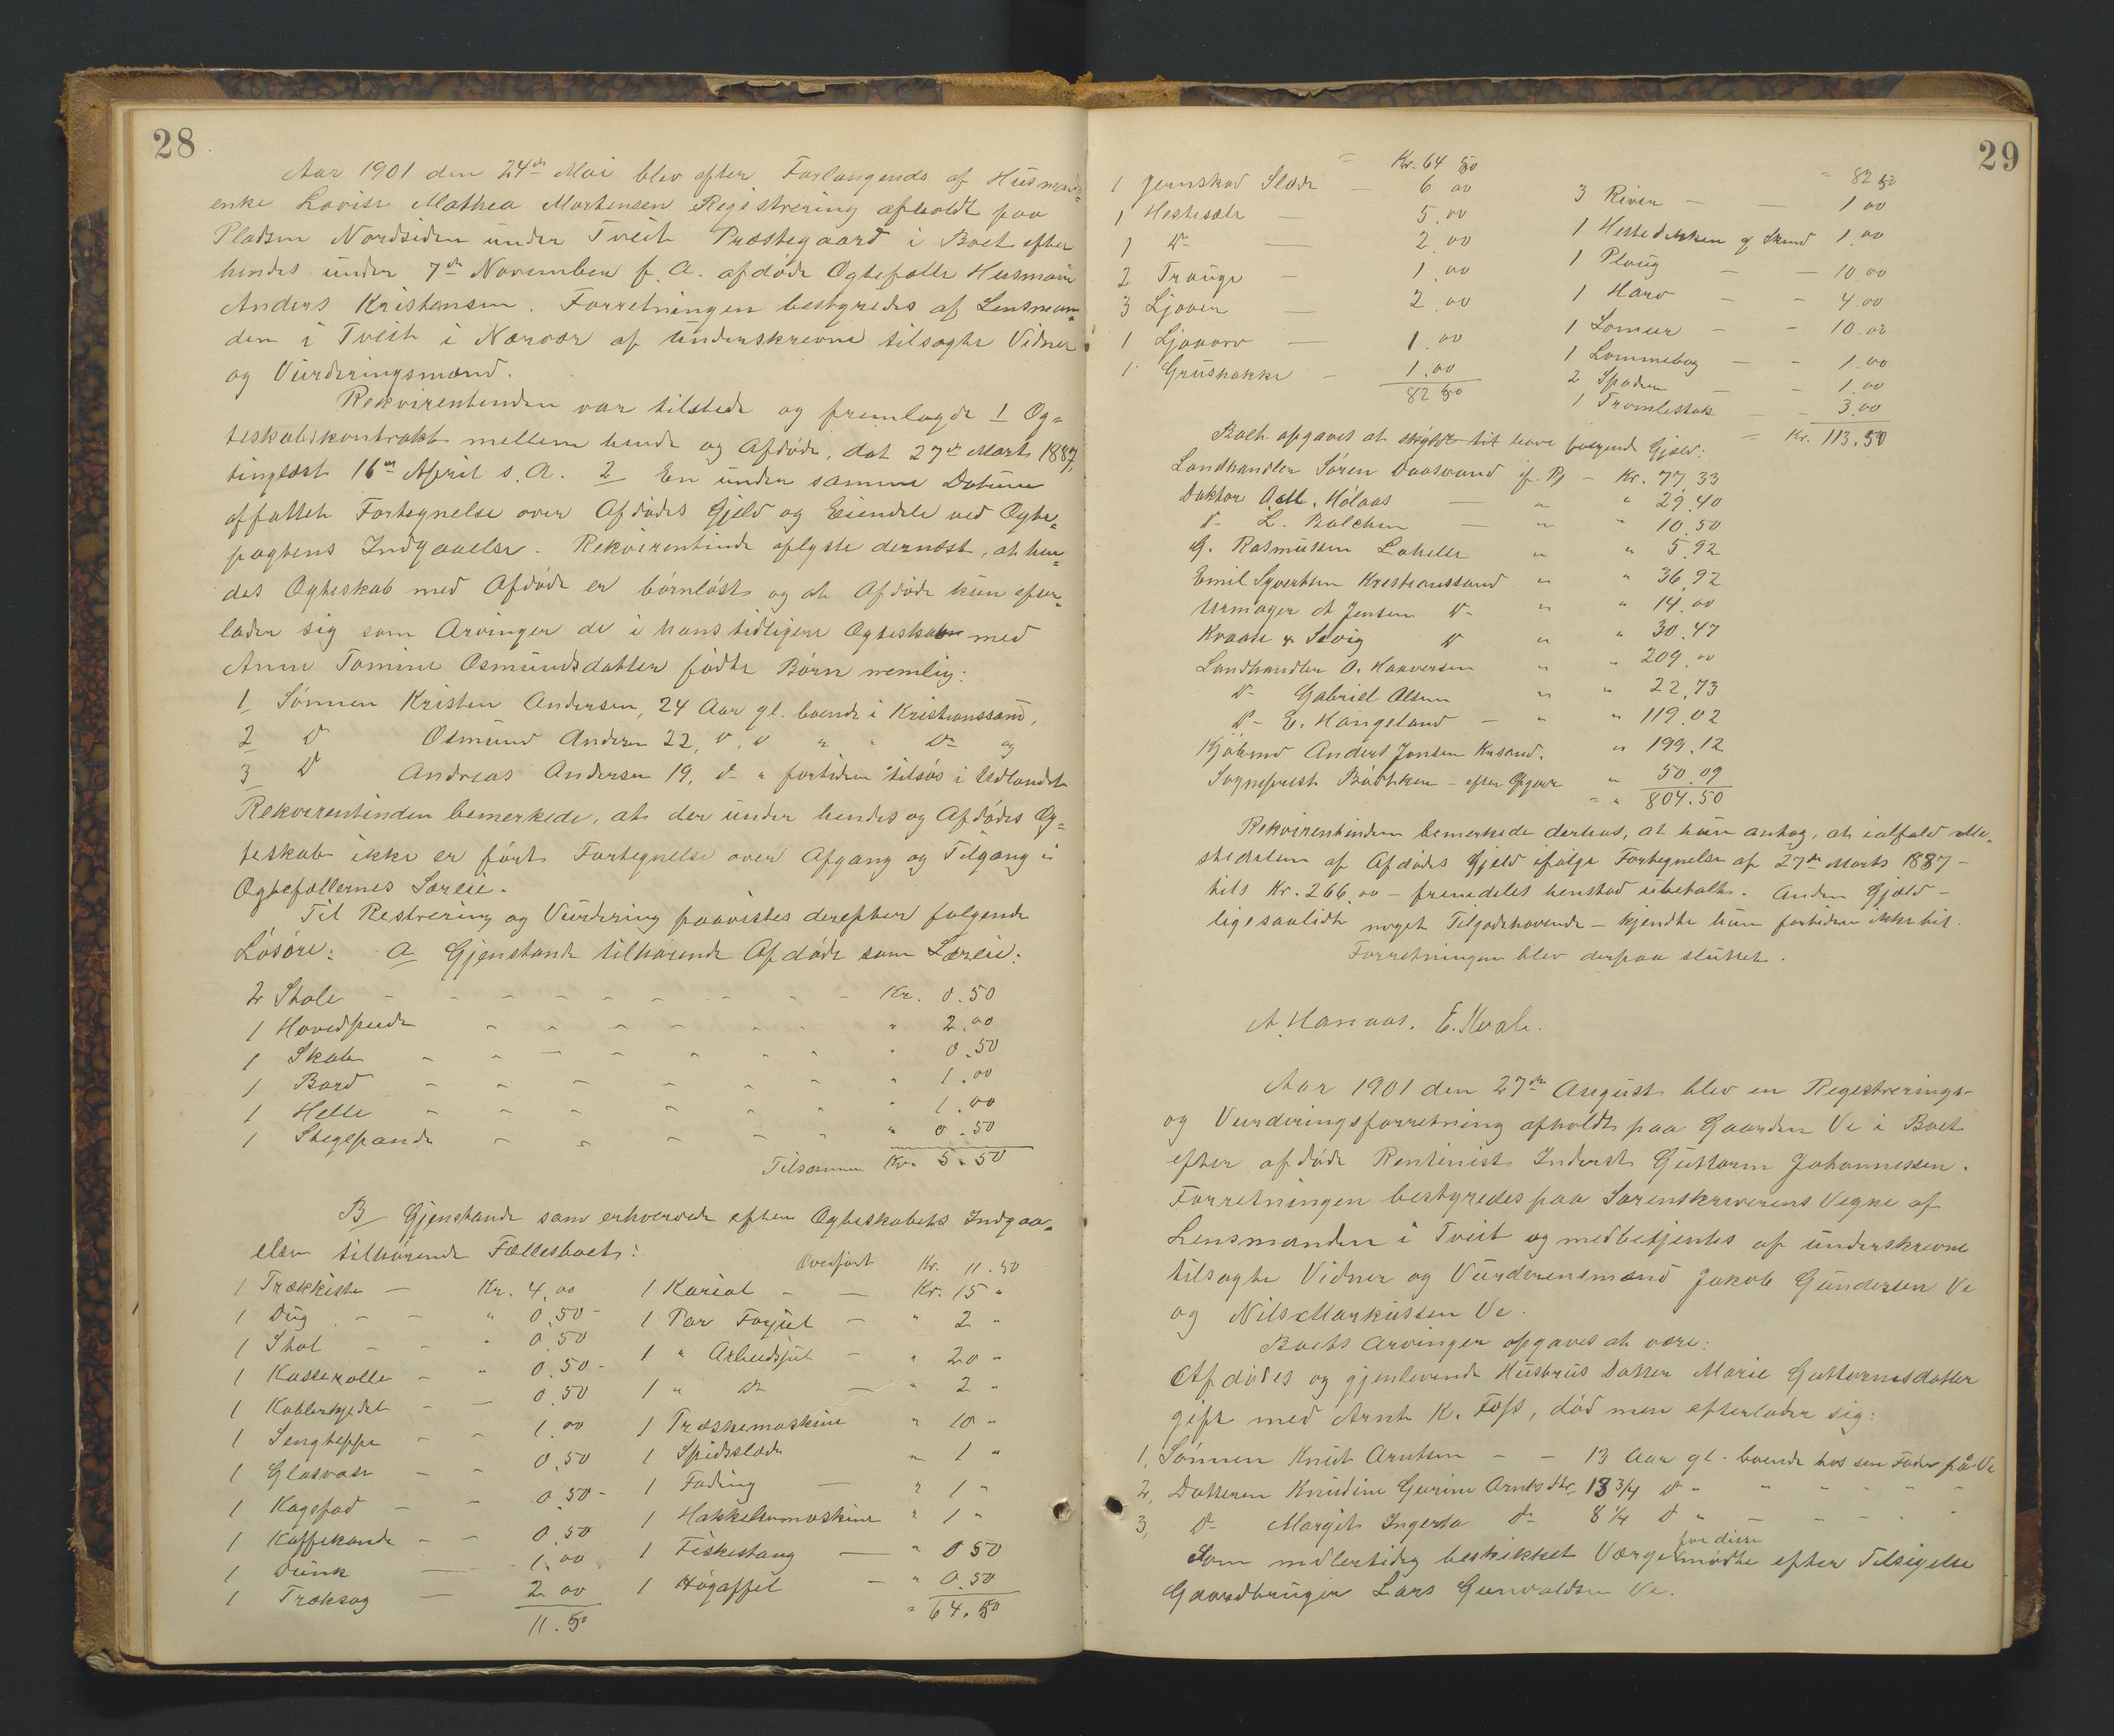 28
Aar 1901 den 24de Mai blev efter Forlangende af Husmands-
enke Lovise Mathea Mortensen Registrering afholdt paa
Pladsen Nordsiden under Tveit Præstegaard i Boet efter
hendes under 7de November f. A. afdøde Ægtefælle Husmand
Anders Kristensen. Forretningen bestyredes af Lensman-
den i Tveit i Nærvær af underskrevne tilsagte Vidner
og Vurderingsmænd.
Rekvirentinden var tilstede og fremlagde 1 Æg-
teskabskontrakt mellem hende og Afdøde, dat 27de Marts 1887,
tinglæst 16de April s. A. 2 En under samme Datum
affattet Fortegnelse over Afdødes Gjeld og Eiendele ved Ægte-
pagtens Indgaaelse. Rekvirentinde oplyste dernæst, at hen-
des Ægteskab med Afdøde er børnløst og at Afdøde kun efter-
lader sig som Arvinger de i hans tidligere Ægteskab med
Anne Tomine Osmundsdatter fødte Børn nemlig:
1 Sønnen Kristen Andersen, 24 Aar gl. boende i Kristianssand,
2 Do Osmund Andersen 22, do. do " " Do og
3 Do Andreas Andersen 19, do " fortiden tilsøs i Udlandet
Rekvirentinden bemerkede, at der under hendes og Afdødes Æg-
teskab ikke er ført Fortegnelse over Afgang og Tilgang i
Ægtefællernes Særeie.
Til Restrering og Vurdering paavistes derefter følgende
Løsøre: A Gjenstande tilhørende Afdøde som Særeie:
2 Stole - Kr. 0.50
1 Hovedpude " 2.00
1 Skab " 0.50
1 Bord " 1.00
1 Helle " 1.00
1 Stegepande " 0.50
Tilsammen Kr. 5.50
B Gjenstande som erhvervede efter Ægteskabets Indgaa-
else tilhørende Fællesboet:
Overført Kr. 11.50
1 Trækkiste - Kr. 4.00 1 Kariol - Kr. 15 "
1 Dug - " 0.50 1 Par Forjul - " 2 "
1 Stol - " 0.50 1 " Arbeidsjul - " 20 "
1 Kasserolle - " 0.50 1 " Do - " 2 "
1 Kobberkjedel - 0.50 1 Træskemaskine " 10 "
1 Sengteppe - 1.00 1 Spidsslæde " 1 "
1 Glasvase - 0.50 1 Fading - " 1 "
1 Kagefad - 0.50 1 Hakkelsemaskine " 1 "
1 Kaffekande - 0.50 1 Fiskestang - " 0 50
1 Dunk - 1.00 1 Høgaffel - " 0.50
1 Træksag - 2 00 " 64.50
11.50
29
= Kr. 64 50
1 jernskod Slæde - 6 00
1 Hestesæle - 5.00
1 Do - 2 00
2 Trauge - 1 00
3 Ljover - 2.00
1 Ljaaorv - 1.00
1 Grushakke - 1.00
82 50
= 82 50
3 River - 1 00
1 Hestedækken af Skind 1.00
1 Ploug - 10 00
1 Harv - 4.00
1 - 10.00
1 Lommebog - 1.00
2 Spader - 1.00
1 Tromlestok - 3.00
= Kr. 113.50
Boet opgaves at skylde til have følgende Gjæld:
Landhandler Søren Daasvand if. Rg - Kr. 77.33
Doktor Adll. Hølaas - " " 29.40
Do L. Balchen - " " 10.50
G. Rasmussen Lahelle " " 5.92
Emil Syvertsen Kristianssand " " 36.92
Urmager A Jensen Do " " 14.00
Kraase & Solvig Do " " 30.47
Landhandler O. Haaversen " " 209.00
Do Gabriel Olsen " " 22.73
Do E. Hangeland - " " 119.02
Kjøbmd Anders Jonsen Krsand. " 199.12
Sogneprest Bødtker - efter Opgave " 50.09
= " 804.50
Rekvirentinden bemerkede derhos, at hun antog, at ialfald stør-
stedelen af Afdødes Gjeld ifølge Fortegnelse af 27de Marts 1887 -
tils Kr. 266.00 - fremdeles henstod ubetalt. Anden Gjæld -
ligesaalidt noget Tilgodehavende - kjendte hun fortiden ikke til.
Forretningen blev derpaa sluttet.
A. Hanaas. E. Kvale.
Aar 1901 den 27de August blev en Registrerings-
og Vurderingsforretning afholdt paa Gaarden Ve i Boet
efter afdøde Rentenist Inderst Guttorm Johannessen.
Forretningen bestyredes paa Sorenskriverens Vegne af
Lensmanden i Tveit og medbetjentes af underskrevne
tilsagte Vidner og Vurderensmænd Jakob Gundersen Ve
og Nils Markussen Ve.
Boets Arvinger opgaves at være:
Afdødes og gjenlevende Hustrus Datter Marie Guttormsdatter
gift med Arnt K. Foss, død men efterlader sig:
1, Sønnen Knut Arntsen - - 13 Aar gl. boende hos sin Fader på Ve
2, Datteren Knudine Gurine Arnts dtr. 13 3/4 Do "
3, Do Margit Ingerda do 8 1/4 Do "
Som midlertidig beskikket Værge for disse mødte efter Tilsigelse
Gaardbruger Lars Gunvaldsen Ve.